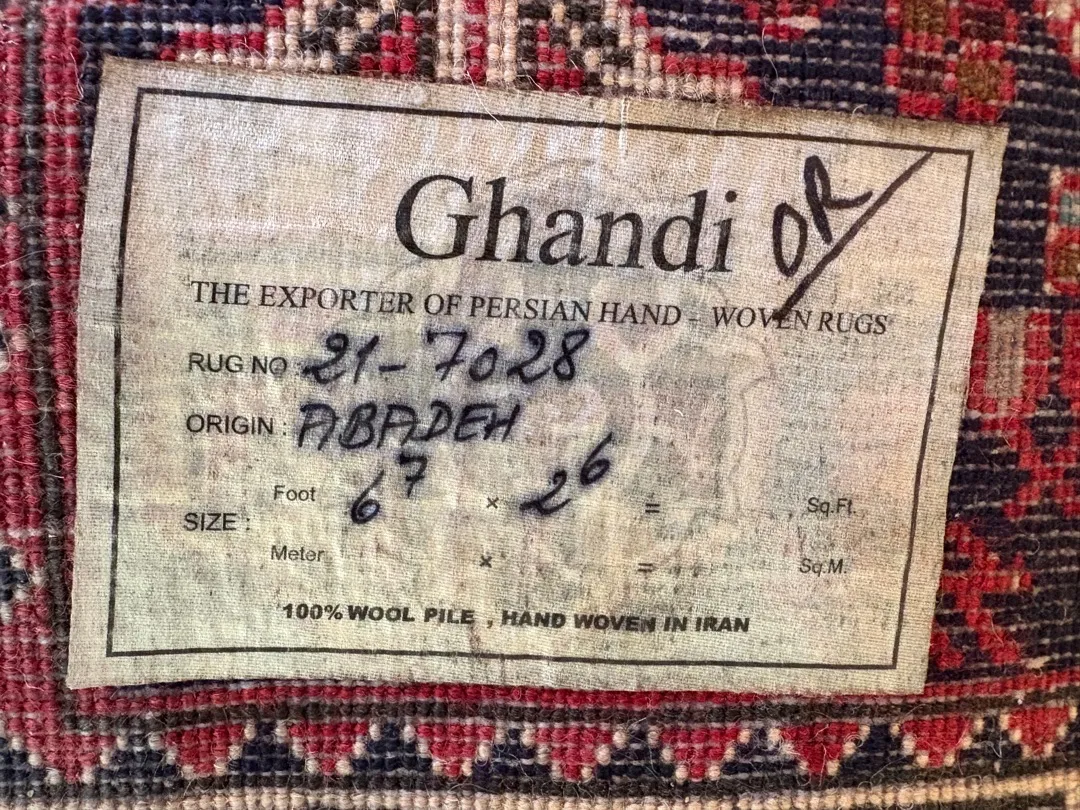 Ghandi OR
THE EXPORTER OF PERSIAN HAND - WOVEN RUGS
RUG NO 21-7028
ORIGIN : ABADEH
SIZE : Foot 6⁷ × 2⁶ = Sq.Ft.
Meter × = Sq.M.
100% WOOL PILE , HAND WOVEN IN IRAN